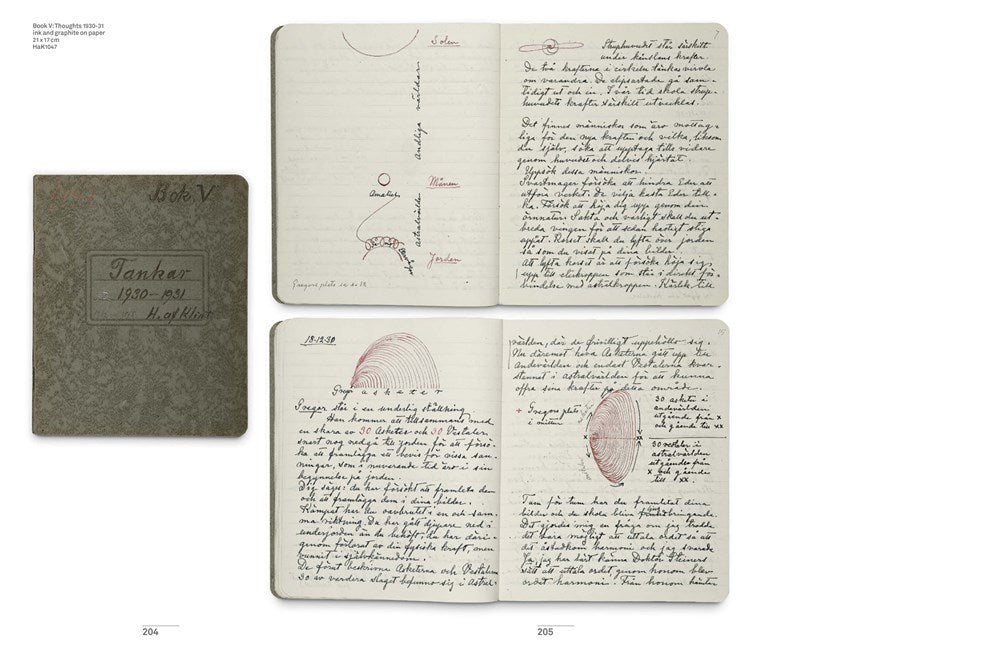 Book V: Thoughts 1930-31
ink and graphite on paper
21 x 17 cm
HaK1047
Bok V
Tankar
1930–1931
H. af Klint
Solen
Andliga världar
Månen
Amaliel
Astralvärlden
Jorden
Gregors plats
7
Struphuvudet står särskilt
under känslans krafter.
De två krafterna i cirkeln tänkas virvla
om varandra. De elipsartade gå sam-
tidigt ut och in. I vår tid skola strup-
huvudets krafter särskilt utvecklas.
Det finnes människor som äro mottag-
liga för den nya kraften och vilka, liksom
du själv, söka att upptaga
genom huvudet och delvis hjärtat.
Uppsök dessa människor.
Svartmager försöka att hindra Eder att
utföra verket. De vilja kasta Eder till-
ka. Försök att höja dig upp genom din
örnnatur. Sakta och varligt skall du ut-
breda vingen för att sedan hastigt stiga
uppåt. Korset skall du lyfta över jorden
så som du visat på dina bilder.
Att lyfta korset är att försöka höja sig
upp till eterkroppen som står i direkt för-
bindelse med astralkroppen. Kärlek till
18-12-30
Gregor asketer
Gregor står i en underlig ställning
Han kommer att tillsammans med
en skara av 30 Asketer och 30 Vestaler
snart nog nedgå till jorden för att försö-
ka att framlägga ett bevis för vissa san-
ningar, som i nuvarande tid äro i sin
begynnelse på jorden.
Dig säges: du har försökt att framleta dem
och att framlägga dem i dina bilder.
Kämpat har du oavbrutet i en och sam-
ma riktning. Du har gått djupare ned i
underjorden än du behöft, du har däri-
genom förlorat av din fysiska kraft, men
vunnit i självkännedom.
De förut beskrivna Asketerna och Vestalerna
30 av vardera slaget befinna sig i Astral-
15
världen, där de frivilligt uppehållo sig.
Nu däremot hava Asketerna gått upp till
andevärlden och endast Vestalerna kvar-
stannat i astralvärlden för att kunna
offra sina krafter på detta område.
+ Gregors plats
i mitten
30 asketer i
andevärlden
utgående från x
och gående till xx
30 vestaler i
astralvärlden
utgående från
x och gående
till xx.
Tum för tum har du framletat dina
bilder och de skola bliva bringande.
Det gjordes mig en fråga om jag trodde
det vara möjligt att uttala ordet så att
det åstadkom harmoni och jag svarade
Ja jag har lärt känna Doktor Steiners
sätt att uttala ordet genom honom blev
ordet harmoni. Från honom hämtar
204
205